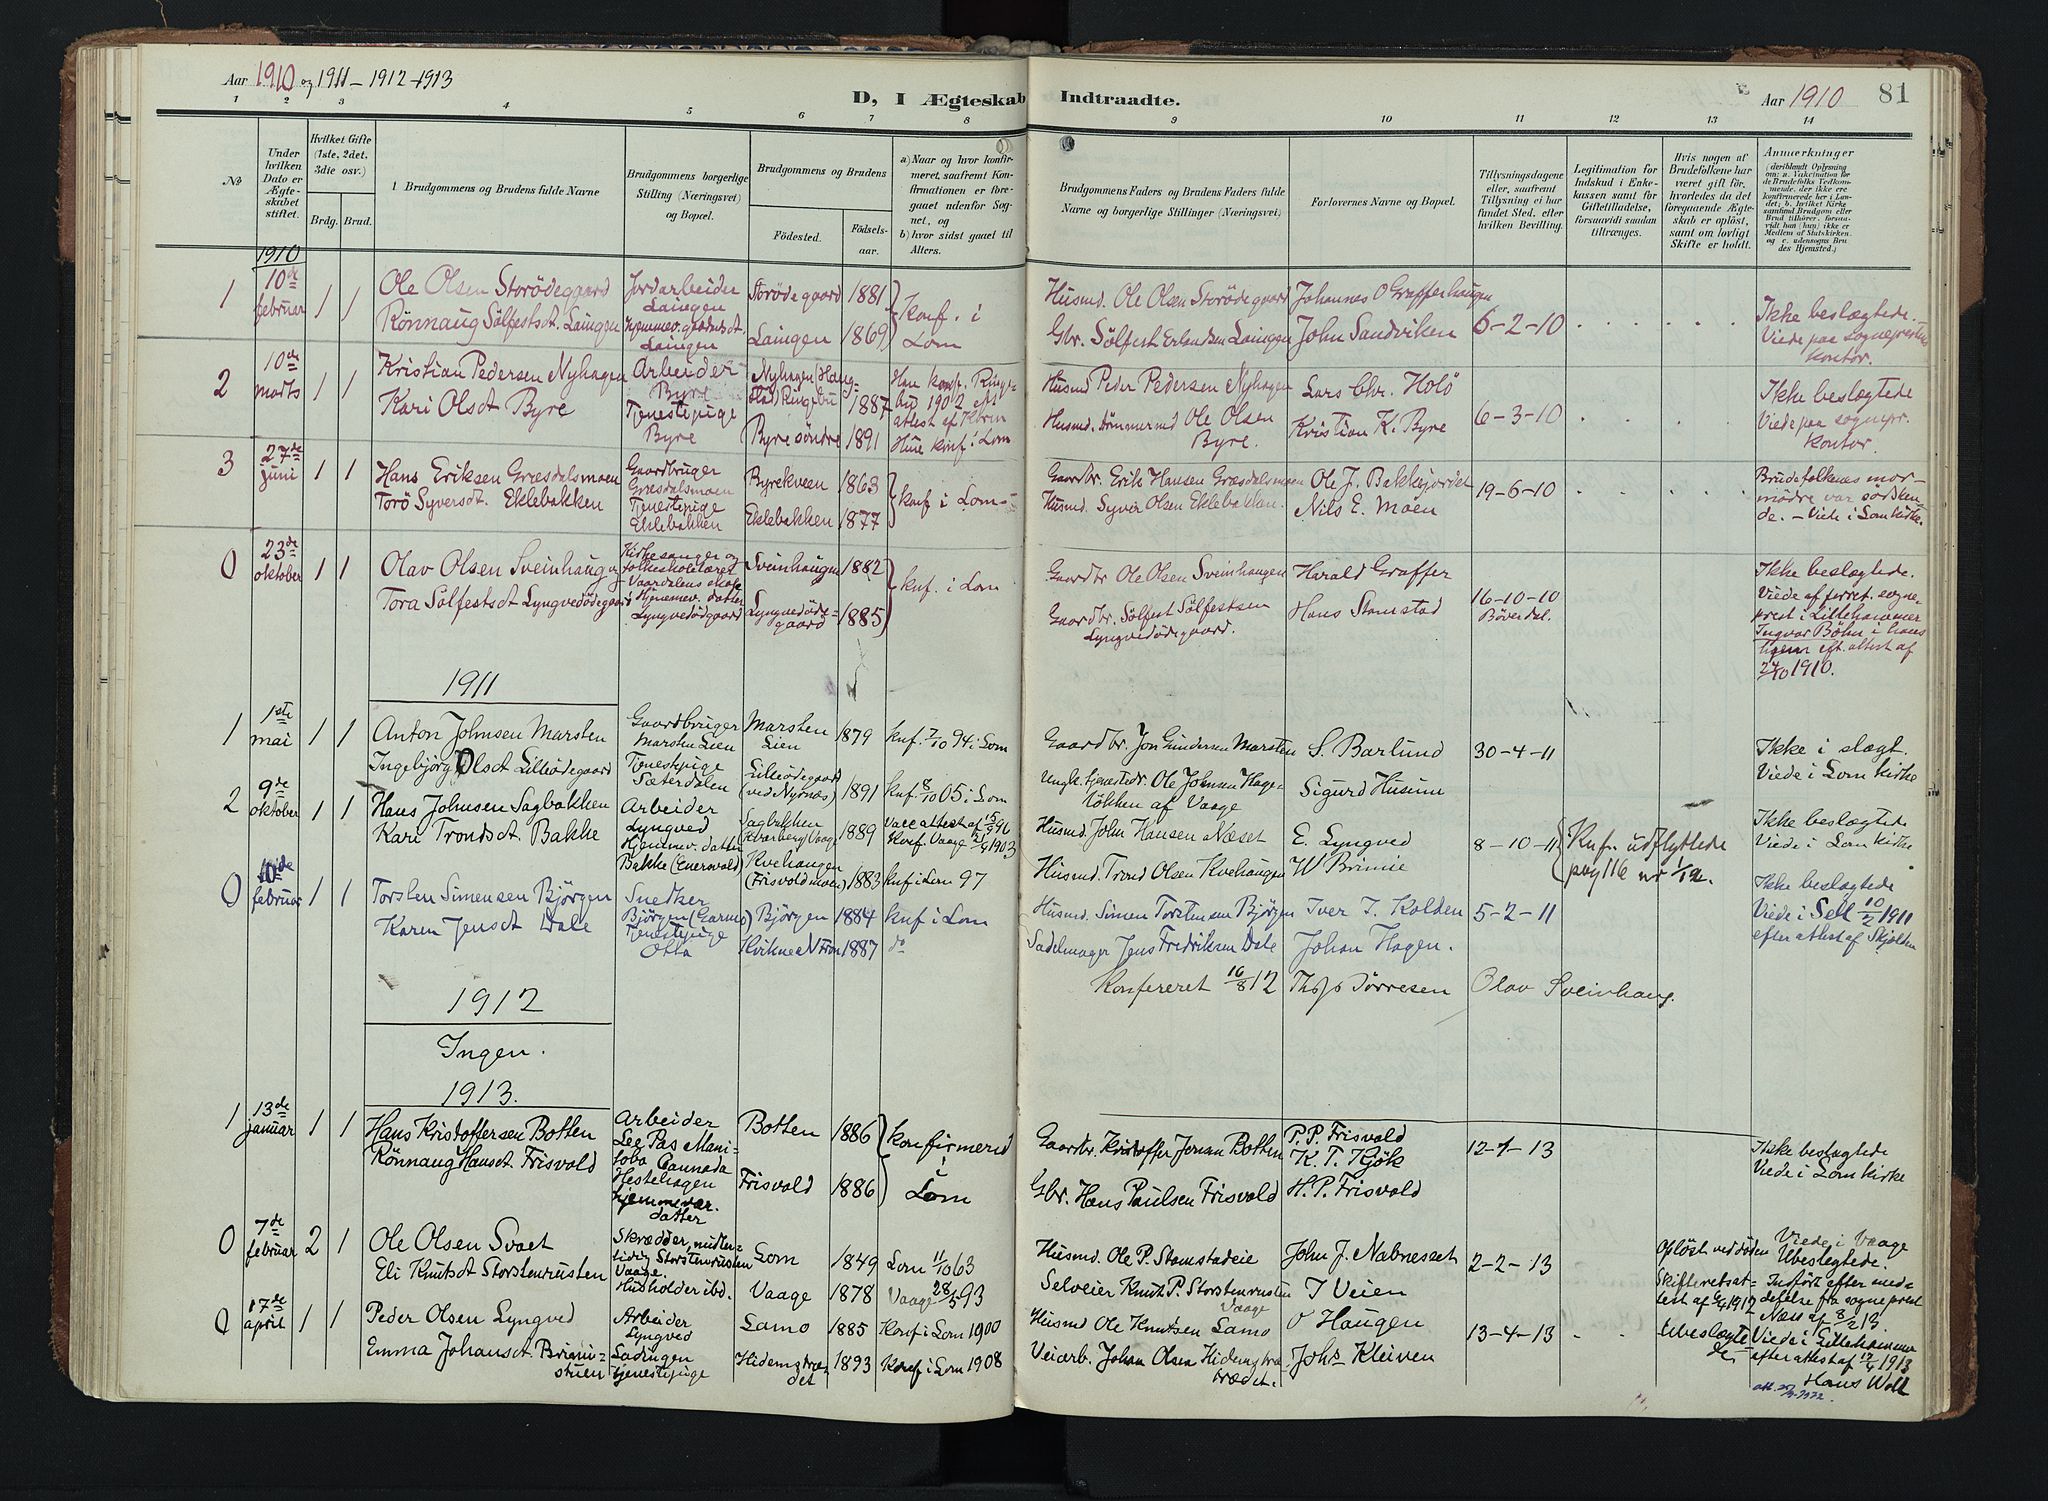 Aar 1910 og 1911 – 1912 – 1913
D, I Ægteskab Indtraadte.
Aar 1910 81
1 2 3 4 5 6 7 8 9 10 11 12 13 14
No
Under hvilken Dato er Ægteskabet stiftet.
Hvilket Gifte (1ste, 2det, 3die osv.)
Brdg. Brud.
Brudgommens og Brudens fulde Navne
Brudgommens borgerlige Stilling (Næringsvei) og Bopæl.
Brudgommens og Brudens
Fødested. Fødsels-aar.
a) Naar og hvor konfirmeret, saafremt Konfirmationen er foregaaet udenfor Sognet, og
b) hvor sidst gaaet til Alters.
Brudgommens Faders og Brudens Faders fulde Navne og borgerlige Stillinger (Næringsvei)
Forlovernes Navne og Bopæl.
Tillysningsdagene eller, saafremt Tillysning ei har fundet Sted, efter hvilken Bevilling.
Legitimation for Indskud i Enkekassen samt for Giftetilladelse, forsaavidt saadan tiltrænges.
Hvis nogen af Brudefolkene har været gift før, hvorledes da det foregaaende Ægteskab er opløst, samt om lovligt Skifte er holdt.
Anmærkninger
(deriblandt Oplysning om: a. Vakcination for de Brudefolks Vedkommende, der ikke ere konfirmerede her i Landet; b. hvilket Kirkesamfund Brudgom eller Brud tilhører, forsaavidt han (hun) ikke er Medlem af Statskirken og c. udensogns Brudes Hjemsted.)
1910
1 10de februar 1 1
Ole Olsen Storödegaard
Jordarbeider Laingen
Storödegaard 1881
konf. i Lom
Husmd. Ole Olsen Storödegaard
Johannes O Grafferhaugen
Rönnaug Sölfestsdt. Laingen
hjemmev. gaardsdt. Laingen
Laingen 1869
Gbr. Sölfest Erlandsen Laingen
John Sandviken
6-2-10
Ikke beslægtede.
Viede paa sogneprestens
kontor.
2 10de marts 1 1
Kristian Pedersen Nyhagen
Arbeider Byre
Nyhagen (Haugstad) Ringebu 1887
Han konf. Ringebu 1902
Husmd Peder Pedersen Nyhagen
Lars Chr. Holö
Kari Olsdt Byre
Tjenestepige Byre
Byre söndre 1891
Hun knf. i Lom
Husmd. tömmermd Ole Olsen Byre.
Kristian K. Byre
6-3-10
Ikke beslægtede
Viede paa sognepr.
kontor.
3 27de juni 1 1
Hans Eriksen Græsdalsmoen
Gaardbruger Græsdalsmoen
Byrekveen 1863
konf i Lom
Gaardbr. Erik Hansen Græsdalsmoen
Ole J. Bakkejordet
Torö Syversdt. Eklebakken
Tjenestepige Eklebakken
Eklebakken 1877
Husmd. Syver Olsen Eklebakken
Nils E. Moen
19-6-10
Brudefolkenes mor-
mödre var södsken-
de. – Viede i Lom kirke.
0 23de oktober 1 1
Olav Olsen Sveinhaug
Kirkesanger og
Sveinhaugen 1882
knf. i Lom
Gaardbr. Ole Olsen Sveinhaugen
Harald Graffer
Tora Sölfestsdt Lyngvedödegaard
Hjemmev. datter Lyngvedödegaard
Lyngvedödegaard 1885
Gaardbr. Sölfest Sölfestsen Lyngvedödegaard.
Hans Stamstad
16-10-10
Böverdal.
Ikke beslægtede.
Viede af forret. sogne-
prest i Lillehammer
Ingvar Böhn i hans
hjem eft. attest af
24/10 1910.
1911
1 1ste mai 1 1
Anton Johnsen Marsten
Gaardbruger Marsten Lien
Marsten Lien 1879
knf. 7/10 94 i Lom
Gaardbr. Jon Gundersen Marsten
S. Barlund
30-4-11
Ingebjörg Olsdt Lilleödegaard
Tjenestpige Sæterdalen
Lilleödegaard (ved Nyrnæs) 1891
knf. 8/10 05 i Lom
Ungk. tjenestedr. Ole Johnsen Hagelökken af Vaage
Sigurd Husum
Ikke i slægt.
Viede i Lom kirke
2 9de oktober 1 1
Hans Johnsen Sagbakken
Arbeider Lyngved
Sagbakken (Kvarberg) Vaage 1889
Vacc attest af 15/9 96
Konf. Vaage 1903
Husmd. John Hansen Næset
E. Lyngved
8-10-11
Knf. udflyttede
pag 116 nr 1/12.
Kari Trondsdt. Bakke
Hjemmev. datter Bakke
Kvehaugen (Frisvoldmoen) 1883
knf i Lom 97
Husmd. Trond Olsen Kvehaugen
W Brimie
Ikke beslægtede
Viede i Lom kirke
0 10de februar 1 1
Torsten Simensen Björgen
Snedker Björgen (Garmo)
Björgen 1884
knf i Lom
Husmd. Simen Torstensen Björgen
Iver I. Kolden
5-2-11
Karen Jensdt Dale
Tjenestepige Otta
Kvikne N Fron 1887
do
Sadelmager Jens Fredriksen Dale
Johan Hagen.
Ikke beslægtede
Viede i Sell 10/2 1911
efter attest af Skjölden
Konfereret 16/8 12 Thojo Törresen Olav Sveinhaug.
1912
Ingen.
1913.
1 13de januar 1 1
Hans Kristoffersen Botten
Arbeider Lee Pas Manitoba Cannada
Botten 1886
konfirmered i Lom
Gaardbr. Kristoffer Botten
P. P. Frisvold
K. T. Kjök
12-1-13
Ikke beslægtede
Viede i Lom kirke
Rönnaug Hansdt. Frisvold
Hestehagen hjemmevær. datter
Frisvold 1886
Gbr. Hans Paulsen Frisvold
H. P. Frisvold
0 7de februar 2 1
Ole Olsen Svaet
Skrædder, midlertidig Storstenrusten Vaage.
Lom 1849
Lom 11/10 63
Husmd. Ole P. Stamstadeie
John J. Nabneset
2-2-13
Opløst ved døden
Skifteretsat-
test af 1912
Eli Knutsdt Storstenrusten
Husholder ibd.
Vaage 1878
Vaage 28/5 93
Selveier Knut P. Storstenrusten Vaage
I Veien
Viede i Vaage
Ubeslegtede.
Indfört efter med-
delelse fra sogneprest
Næss af 8/2 13.
0 17de april 1 1
Peder Olsen Lyngved
Arbeider Lyngved
Lamo 1885
Konf i Lom 1900
Husmd Ole Knutsen Lamo
O Haugen
13-4-13
Ubeslægtede
Emma Johansdt.
tjenestepige
1893
Konf i Lom 1908
Veiarb. Johan Olsen
Johs Kleiven
Viede i Lillehammer
efter attest af 17/4 1913
Hans Woll